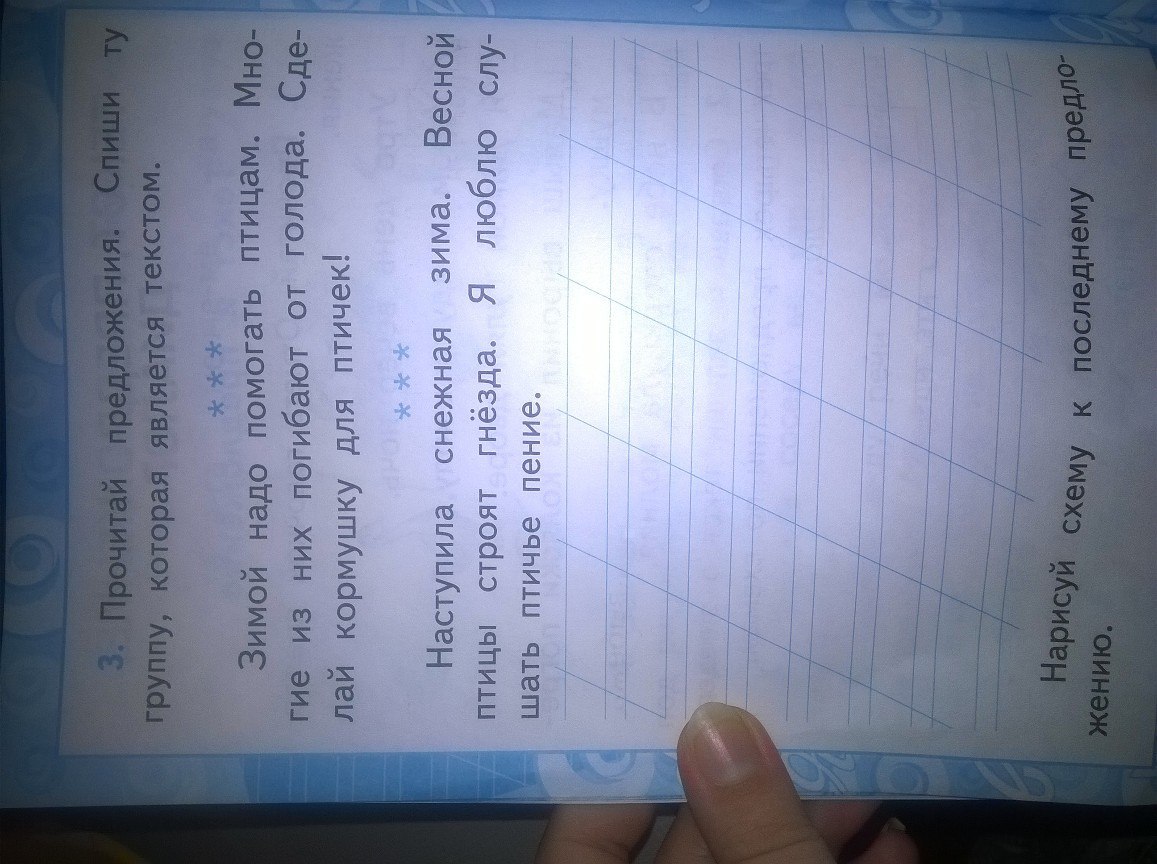 3. Прочитай предложения. Спиши ту
группу, которая является текстом.
* * *
Зимой надо помогать птицам. Мно-
гие из них погибают от голода. Сде-
лай кормушку для птичек!
* * *
Наступила снежная зима. Весной
птицы строят гнёзда. Я люблю слу-
шать птичье пение.
Нарисуй схему к последнему предло-
жению.